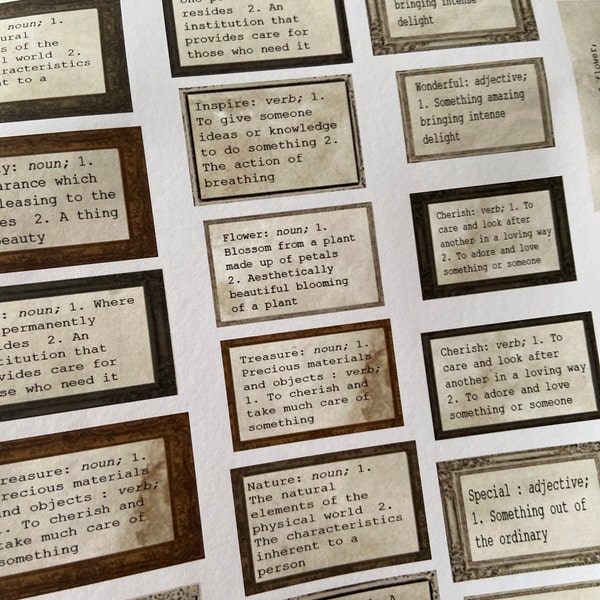 noun; 1.
of the
world 2.
characteristics
to a
noun; 1.
which
to the
2. A thing
beauty
noun; 1. Where
permanently
2. An
institution that
provides care for
those who need it
Treasure: noun; 1.
Precious materials
and objects : verb;
1. To cherish and
take much care of
something
resides 2. An
institution that
provides care for
those who need it
Inspire: verb; 1.
To give someone
ideas or knowledge
to do something 2.
The action of
breathing
Flower: noun; 1.
Blossom from a plant
made up of petals
2. Aesthetically
beautiful blooming
of a plant
Treasure: noun; 1.
Precious materials
and objects : verb;
1. To cherish and
take much care of
something
Nature: noun; 1.
The natural
elements of the
physical world 2.
The characteristics
inherent to a
person
bringing intense
delight
Wonderful: adjective;
1. Something amazing
bringing intense
delight
Cherish: verb; 1. To
care and look after
another in a loving way
2. To adore and love
something or someone
Cherish: verb; 1. To
care and look after
another in a loving way
2. To adore and love
something or someone
Special : adjective;
1. Something out of
the ordinary
Flower,